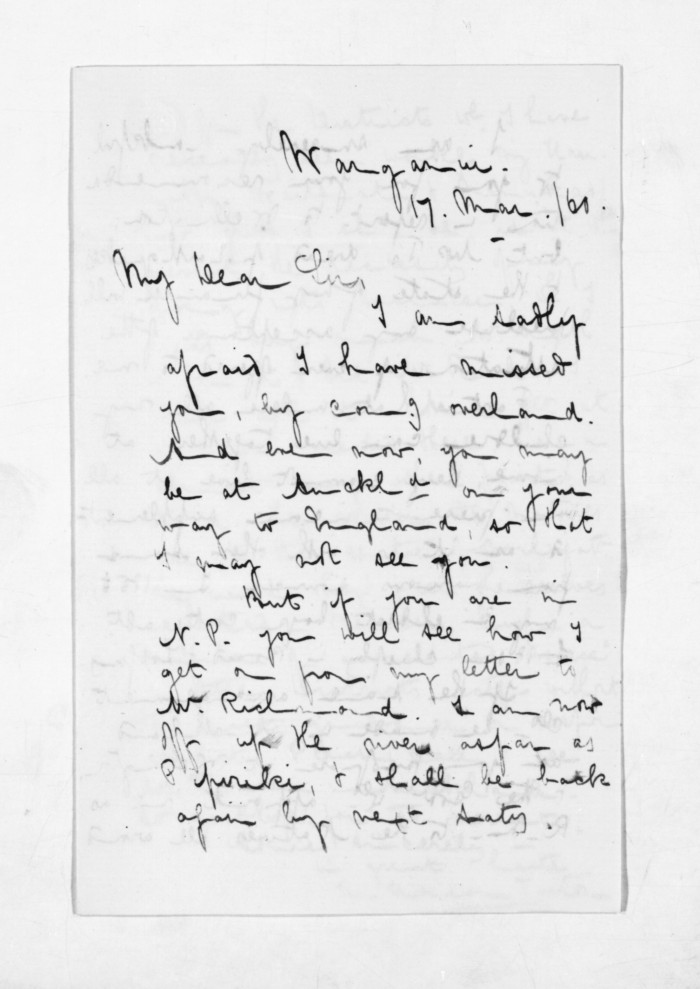 Wanganui.
17. Mar. /60.
My Dear Sir,
I am sadly
afraid I have missed
you, by com^g overland.
And even now, you may
be at Auckl^d on your
way to England, so that
I may not see you.
But if you are in
N.P. you will see how I
get on from my letter to
Mr Richmond. I am now
off up the river as far as
Pipiriki, & shall be back
again by next Saty.